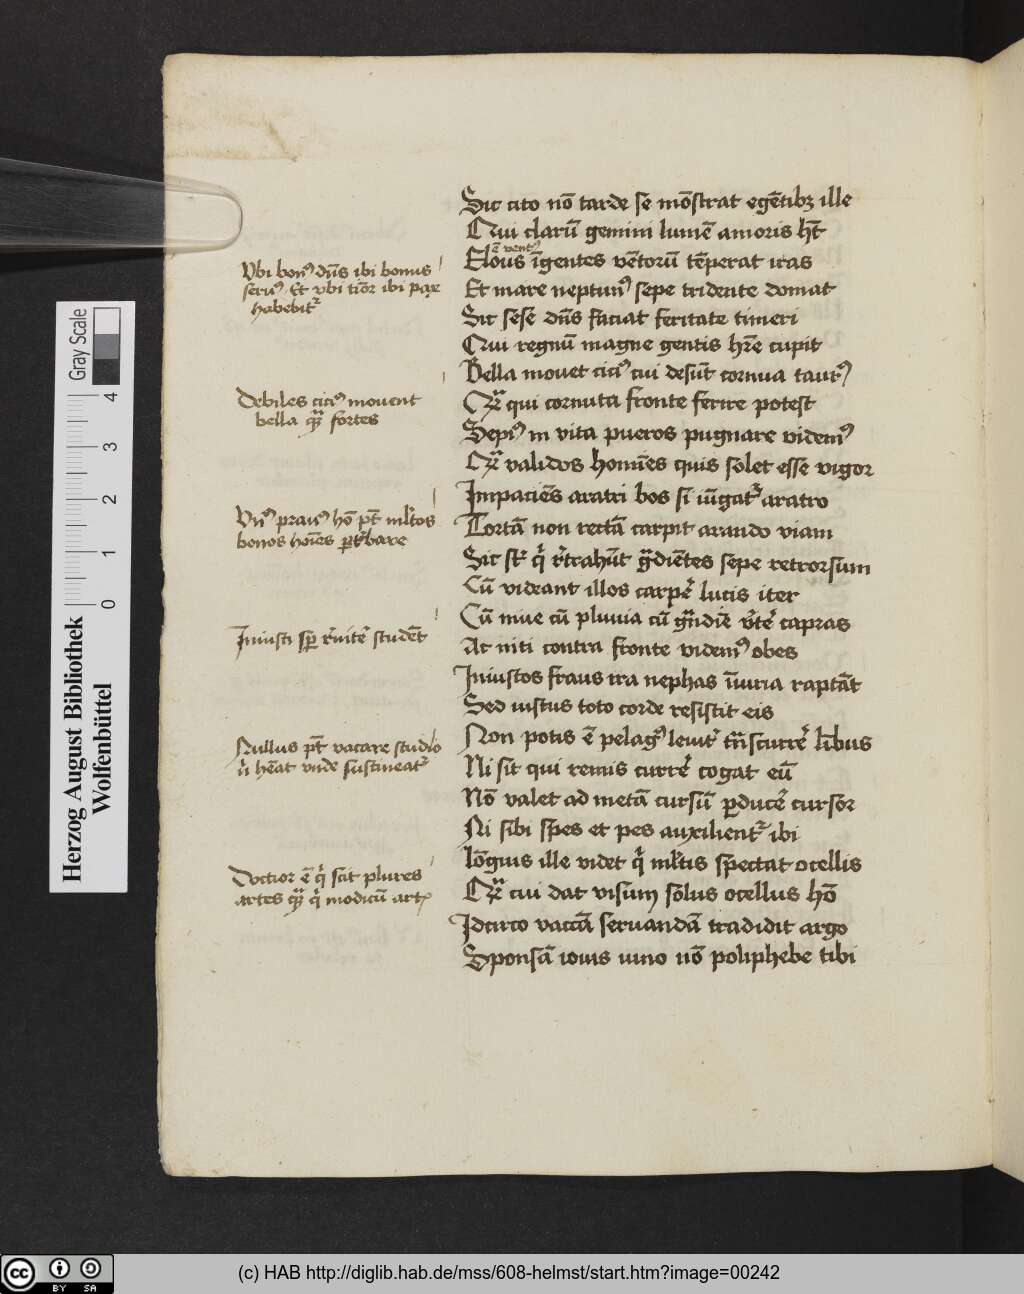 Sic cito nō tarde se mōstrat egētibꝫ ille
Qui clarū gemini lumē amoris hēt
ē ventꝰ
Elous īgentes vētorū tēperat iras
Et mare neptunꝰ sepe tridente domat
Sic sese dn̄s faciat feritate timeri
Qui regnū magne gentis hr̄e cupit
Bella mouet ciciꝰ cui desūt cornua taurꝰ
Qͣꝫ qui cornuta fronte ferire potest
Sepiꝰ in vita pueros pugnare videmꝰ
Qͣꝫ validos homīes quis solet esse vigor
Impaciēs aratri bos si iūgatᷣ aratro
Tortā non rectā carpit arando viam
Sic sᷣt qͥ rᷣtrahūt gͣdiētes sepe retrorsum
Cū videant illos carpeᷣ lucis iter
Cū niue cū pluuia cū gͣndīe vᷣteᷣ capras
Ac niti contra fronte videmꝰ obes
Iniustos fraus ira nephas īiuria raptāt
Sed iustus toto corde resistit eis
Non potis ē pelagꝰ leuitᷣ tͣnscurreᷣ lībus
Ni sit qui remis curreᷣ cogat eū
Nō valet ad metā cursū ꝑduceᷣ cursor
Ni sibi spes et pes auxilientᷣ ibi
Lōgius ille videt qͥ ml̄tis spectat ocellis
Qͣꝫ cui dat visum solus ocellus hō
Idcirco vaccā seruandā tradidit argo
Sponsā iouis iuno nō poliphebe tibi
Vbi bonꝰ dn̄s ibi bonus
seruꝰ Et vbi tīor ibi pax
habebitᷣ
Debiles ciciꝰ mouent
bella qͣꝫ fortes
Vnꝰ prauꝰ hō pt̄ ml̄tos
bonos hoīes ꝑtᷣbare
Iniusti sꝑ rᷣniteᷣ studēt
Nullus pt̄ vacare studio
nͥ hēat vnde sustineatᷣ
Doctior ē qͥ scit plures
artes qͣꝫ qͥ modicū artꝭ
Gray Scale
0 1 2 3 4
Herzog August Bibliothek
Wolfenbüttel
BY SA
(c) HAB http://diglib.hab.de/mss/608-helmst/start.htm?image=00242